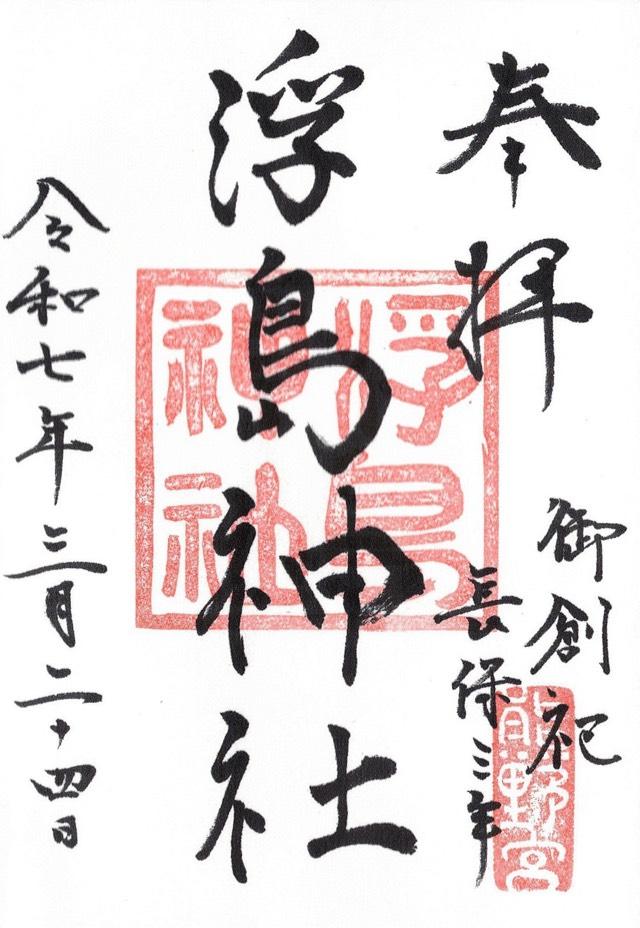 奉拝
御創祀
長保三年
熊野宮
浮島神社
浮島神社
令和七年三月二十四日